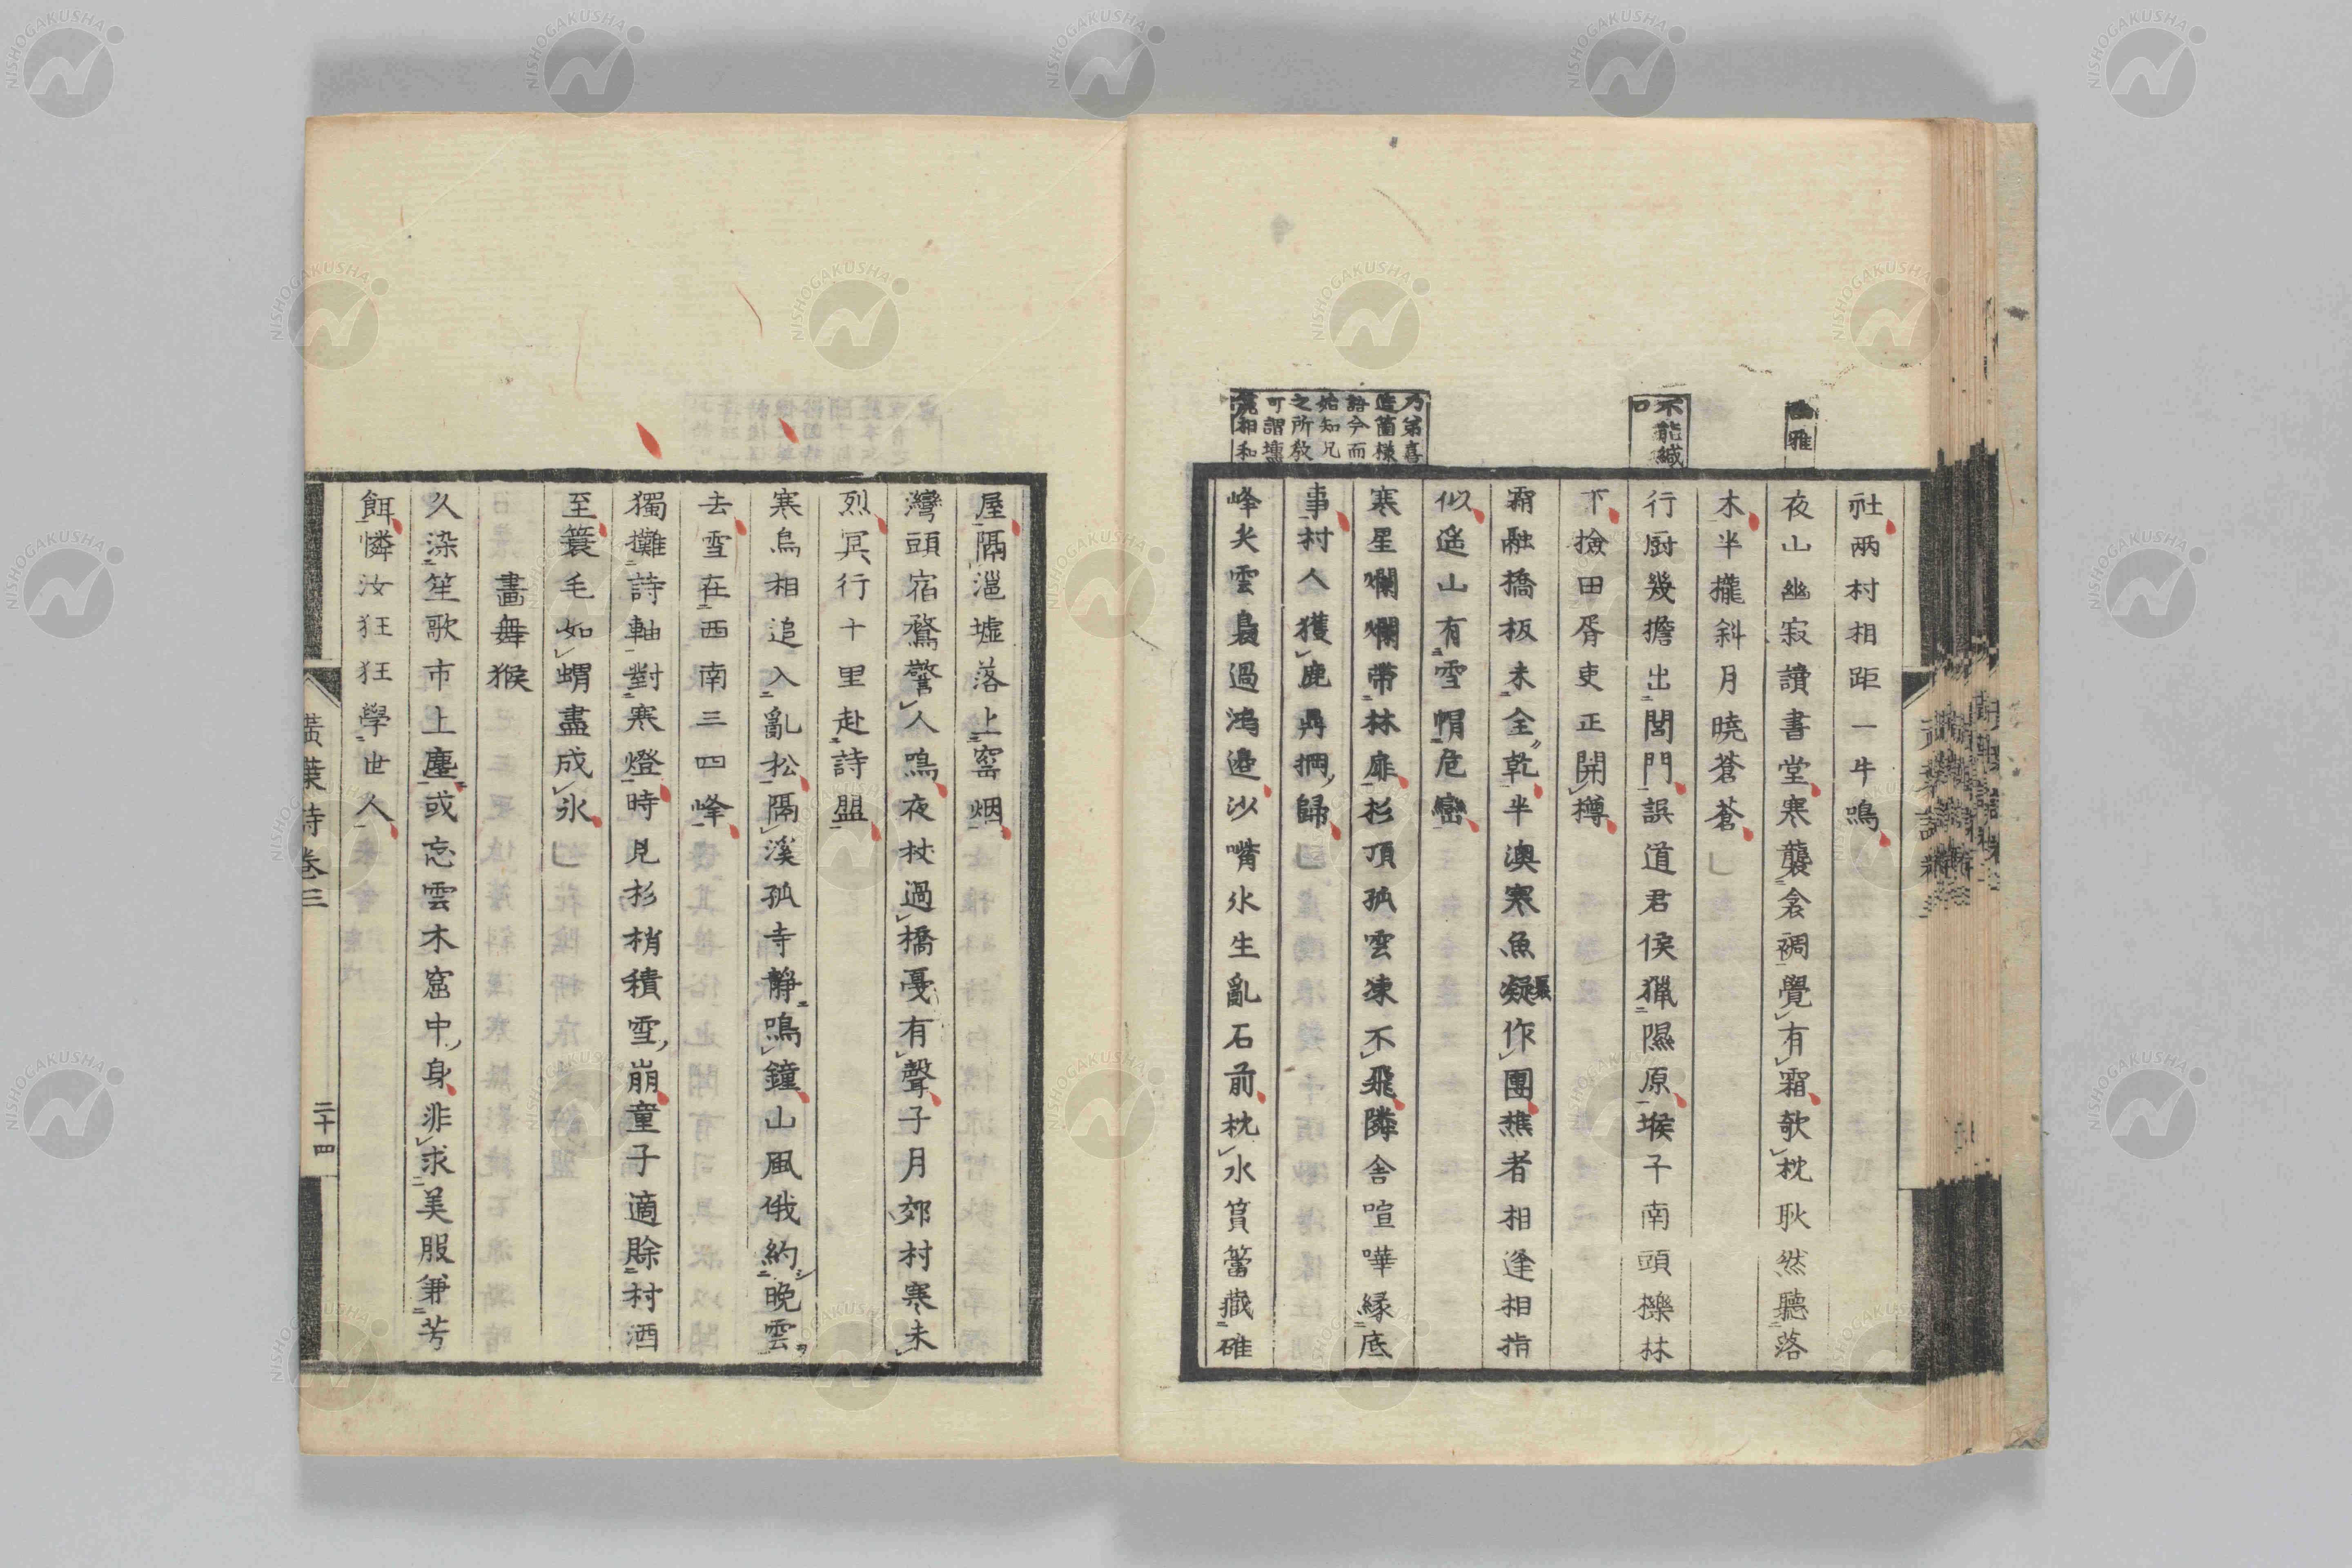 幽雅
不能緘
口
乃弟喜
造箇様
語今而
始知兄
之所教
可謂壎
篪相和
社兩村相距一牛鳴
夜山幽寂讀書堂寒襲衾裯覺有霜欹枕耿然聽落
木半攏斜月曉蒼蒼
行厨幾擔出閭門誤道君侯獵隰原堠子南頭櫟林
下撿田胥吏正開樽
霜融橋板未全乾半澳寒魚凝作團樵者相逢相指
似遥山有雪帽危巒
寒星爛爛帶林扉杉頂孤雲凍不飛隣舎喧嘩縁底
事村人獲鹿舁掆歸
峰尖雲裊過鴻邉沙嘴氷生亂石前枕水筼簹藏碓
屋隔漄墟落上窰烟
灣頭宿鶩警人鳴夜杖過橋戞有聲子月郊村寒未
烈冥行十里赴詩盟
寒鳥相追入亂松隔溪孤寺静鳴鐘山風俄約晚雲
去雪在西南三四峰
獨攤詩軸對寒燈時見杉梢積雪崩童子適賒村酒
至簑毛如蝟盡成氷
畫舞猴
久染笙歌市上塵或忘雲木窟中身非求美服兼芳
餌憐汝狂狂學世人
黄葉詩卷三
二十四
NISHOGAKUSHA